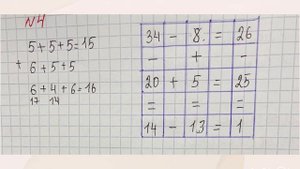 №4
5+5+5=15
+
6+5+5
6+4+6=16
17 14
34 - 8. = 26
- + -
20 + 5 = 25
= = =
14 - 13 = 1